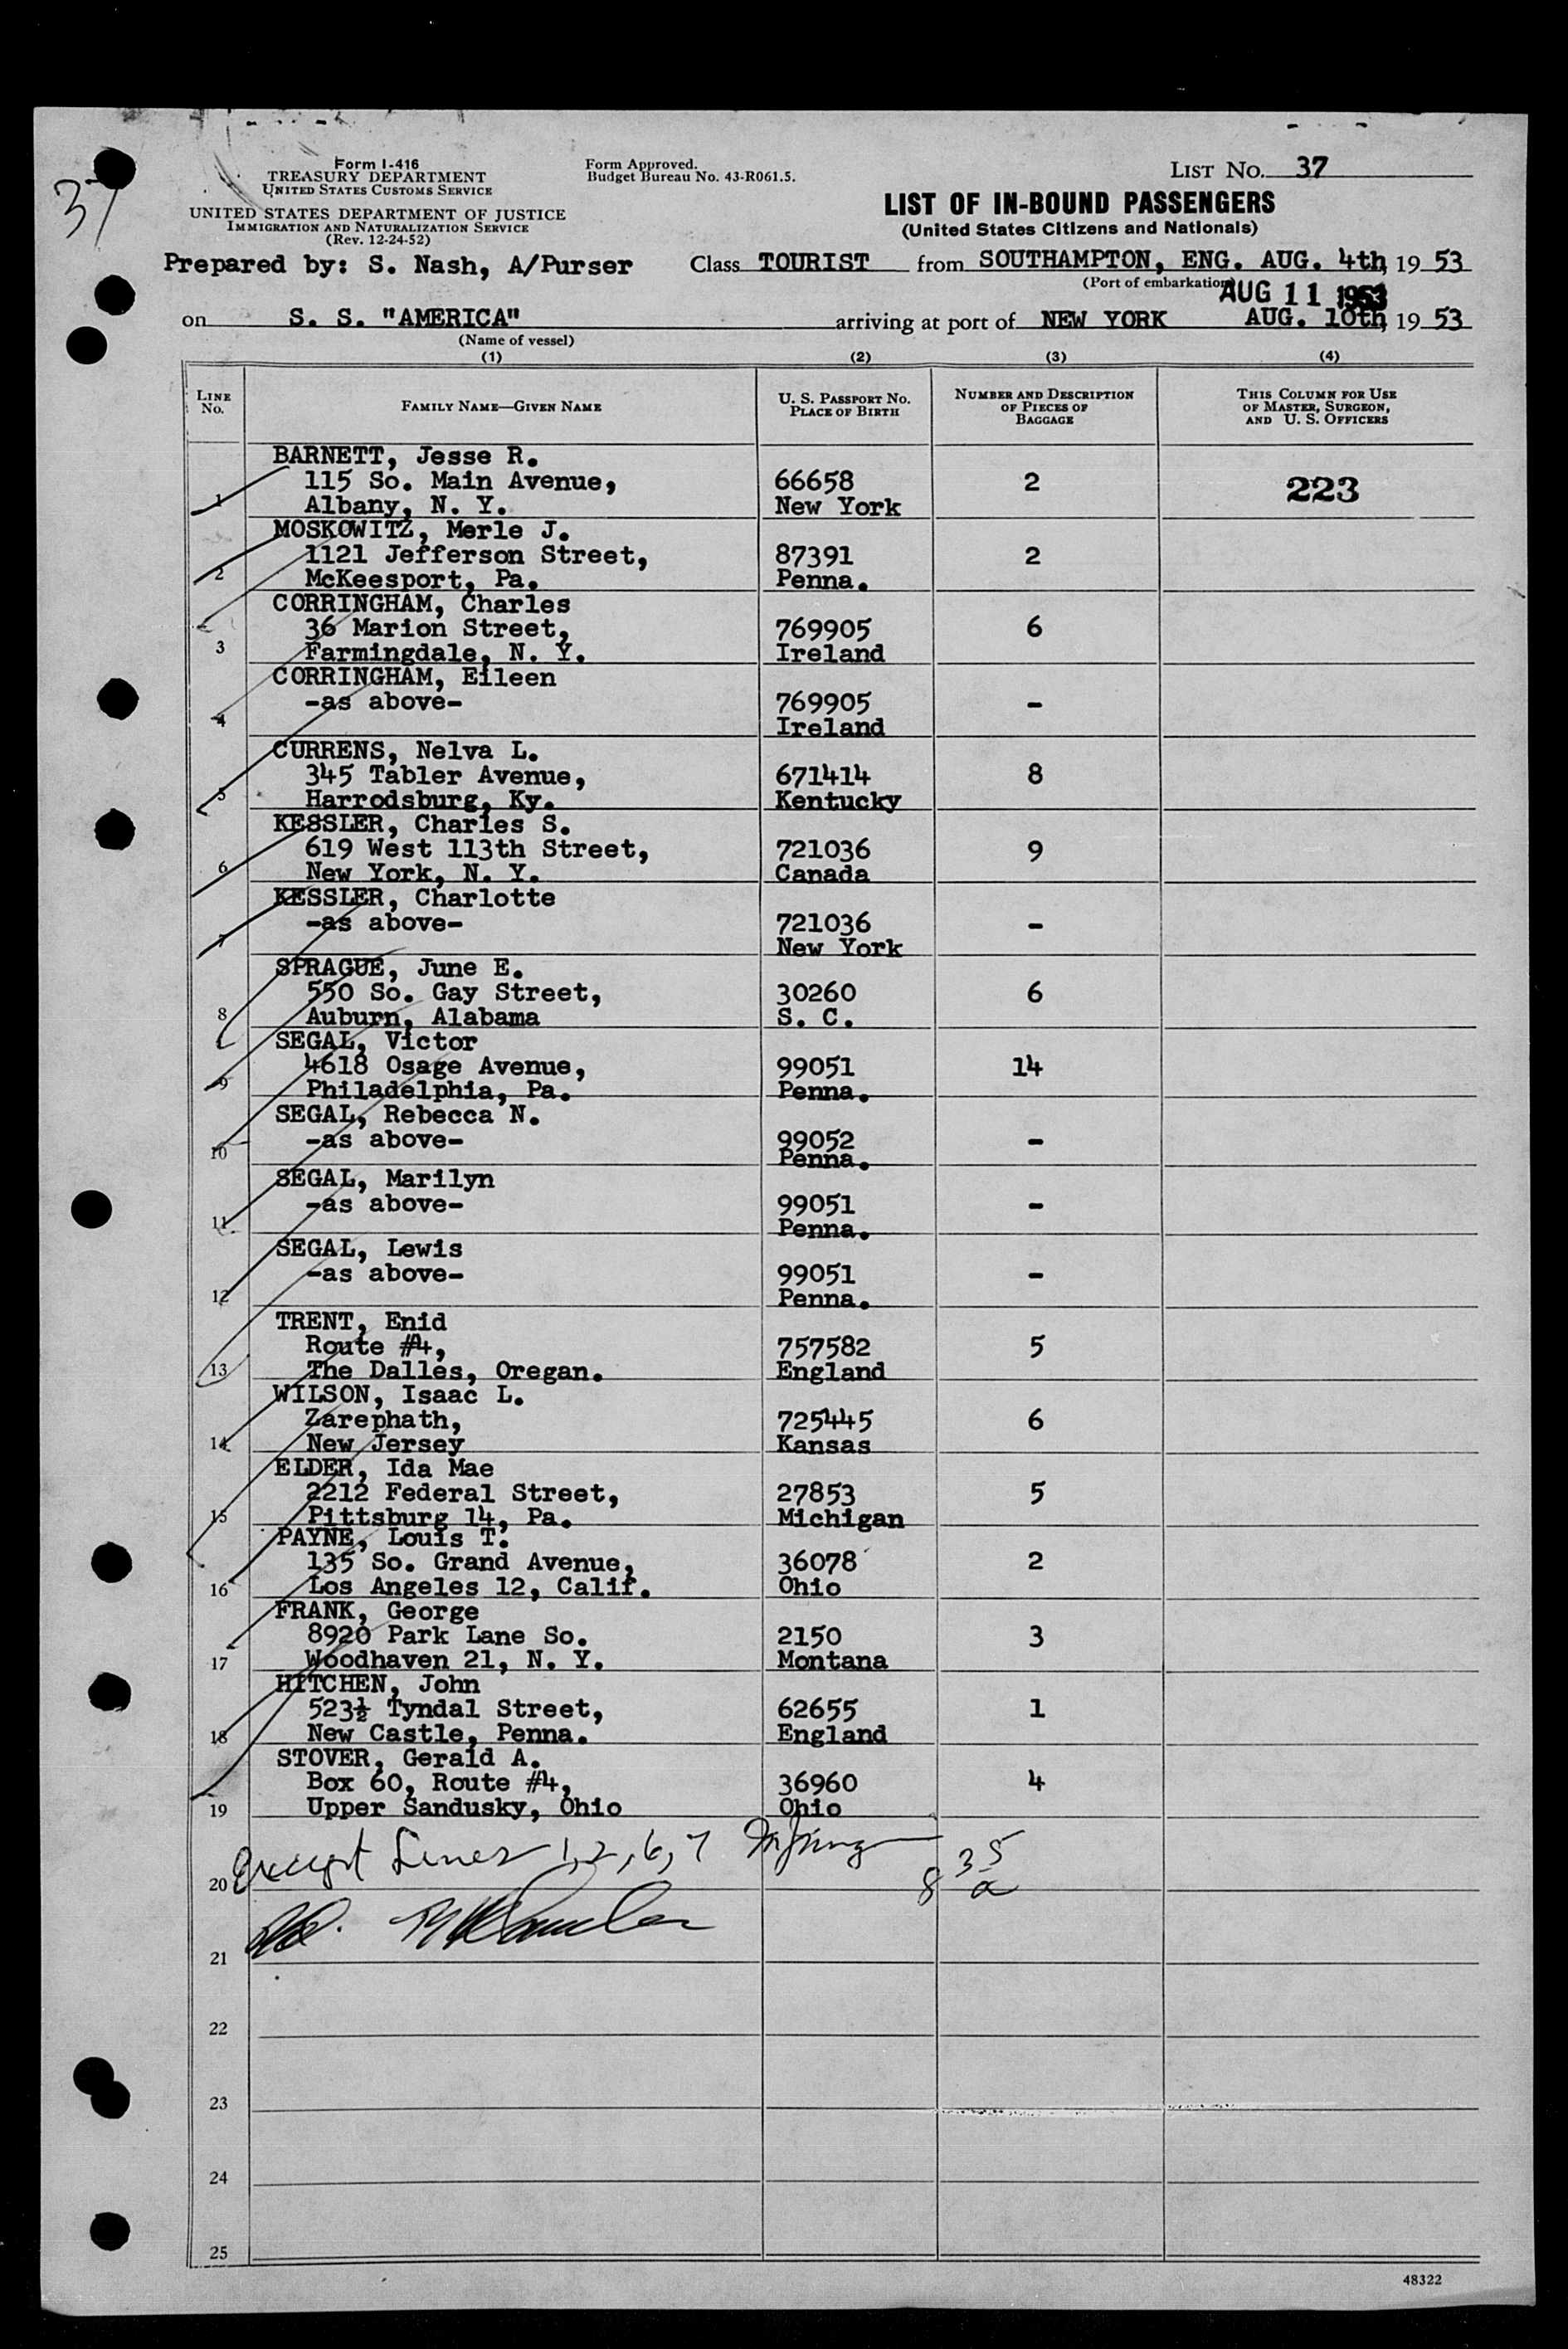 37
Form I-416
TREASURY DEPARTMENT
UNITED STATES CUSTOMS SERVICE
UNITED STATES DEPARTMENT OF JUSTICE
IMMIGRATION AND NATURALIZATION SERVICE
(Rev. 12-24-52)
Form Approved.
Budget Bureau No. 43-R061.5.
LIST NO. 37
LIST OF IN-BOUND PASSENGERS
(United States Citizens and Nationals)
Prepared by: S. Nash, A/Purser Class TOURIST from SOUTHAMPTON, ENG. AUG. 4th, 19 53
(Port of embarkation)
AUG 11 1953
on S. S. "AMERICA" arriving at port of NEW YORK AUG. 10th, 19 53
(Name of vessel)
(1) (2) (3) (4)
LINE NO. FAMILY NAME—GIVEN NAME U. S. PASSPORT NO. PLACE OF BIRTH NUMBER AND DESCRIPTION OF PIECES OF BAGGAGE THIS COLUMN FOR USE OF MASTER, SURGEON, AND U. S. OFFICERS
BARNETT, Jesse R.
115 So. Main Avenue, 66658 2 223
1 Albany, N. Y. New York
MOSKOWITZ, Merle J.
1121 Jefferson Street, 87391 2
2 McKeesport, Pa. Penna.
CORRINGHAM, Charles
36 Marion Street, 769905 6
3 Farmingdale, N. Y. Ireland
CORRINGHAM, Eileen
-as above- 769905 -
4 Ireland
CURRENS, Nelva L.
345 Tabler Avenue, 671414 8
5 Harrodsburg, Ky. Kentucky
KESSLER, Charles S.
619 West 113th Street, 721036 9
6 New York, N. Y. Canada
KESSLER, Charlotte
-as above- 721036 -
7 New York
SPRAGUE, June E.
550 So. Gay Street, 30260 6
8 Auburn, Alabama S. C.
SEGAL, Victor
4618 Osage Avenue, 99051 14
9 Philadelphia, Pa. Penna.
SEGAL, Rebecca N.
-as above- 99052 -
10 Penna.
SEGAL, Marilyn
-as above- 99051 -
11 Penna.
SEGAL, Lewis
-as above- 99051 -
12 Penna.
TRENT, Enid
Route #4, 757582 5
13 The Dalles, Oregan. England
WILSON, Isaac L.
Zarephath, 725445 6
14 New Jersey Kansas
ELDER, Ida Mae
2212 Federal Street, 27853 5
15 Pittsburg 14, Pa. Michigan
PAYNE, Louis T.
135 So. Grand Avenue, 36078 2
16 Los Angeles 12, Calif. Ohio
FRANK, George
8920 Park Lane So. 2150 3
17 Woodhaven 21, N. Y. Montana
HITCHEN, John
523½ Tyndal Street, 62655 1
18 New Castle, Penna. England
STOVER, Gerald A.
Box 60, Route #4, 36960 4
19 Upper Sandusky, Ohio Ohio
Except Lines 1, 2, 6, 7
8 35 a
20
21
22
23
24
25
48322